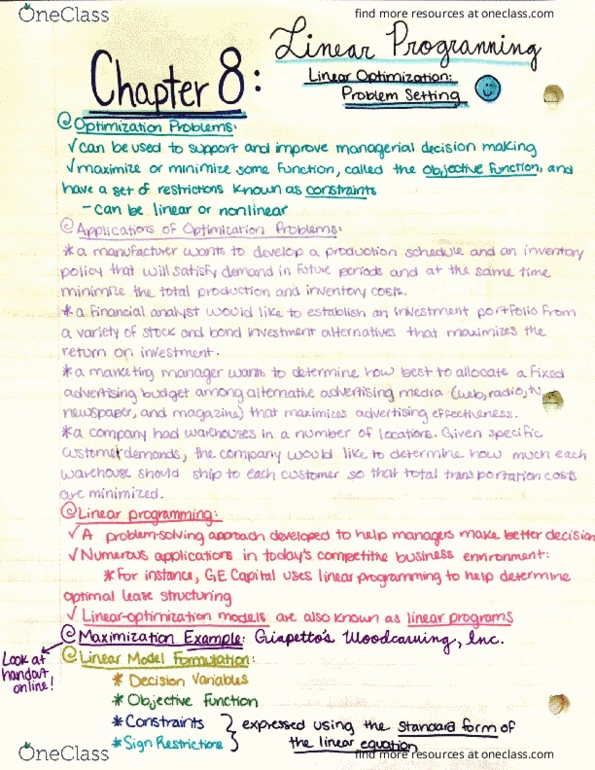 OneClass
find more resources at oneclass.com
Linear Programming
Chapter 8:
Linear Optimization:
Problem Setting
Optimization Problems:
✓can be used to support and improve managerial decision making
✓maximize or minimize some function, called the objective function, and
have a set of restrictions known as constraints
- can be linear or nonlinear
Applications of Optimization Problems:
*a manufacturer wants to develop a production schedule and an inventory
policy that will satisfy demand in future periods and at the same time
minimize the total production and inventory costs.
*a financial analyst would like to establish an investment portfolio from
a variety of stock and bond investment alternatives that maximizes the
return on investment.
*a marketing manager wants to determine how best to allocate a fixed
advertising budget among alternative advertising media (web, radio, tv,
newspaper, and magazine) that maximizes advertising effectiveness.
*a company had warehouses in a number of locations. Given specific
customer demands, the company would like to determine how much each
warehouse should ship to each customer so that total transportation costs
are minimized.
Linear programming:
✓ A problem-solving approach developed to help managers make better decision
✓ Numerous applications in today's competitive business environment:
*For instance, GE Capital uses linear programming to help determine
optimal lease structuring
✓ Linear-optimization models are also known as linear programs
Maximization Example: Giapetto's Woodcarving, Inc.
Look at
handout
online!
Linear Model Formulation:
* Decision Variables
* Objective Function
* Constraints
* Sign Restrictions
expressed using the standard form of
the linear equation
OneClass
find more resources at oneclass.com